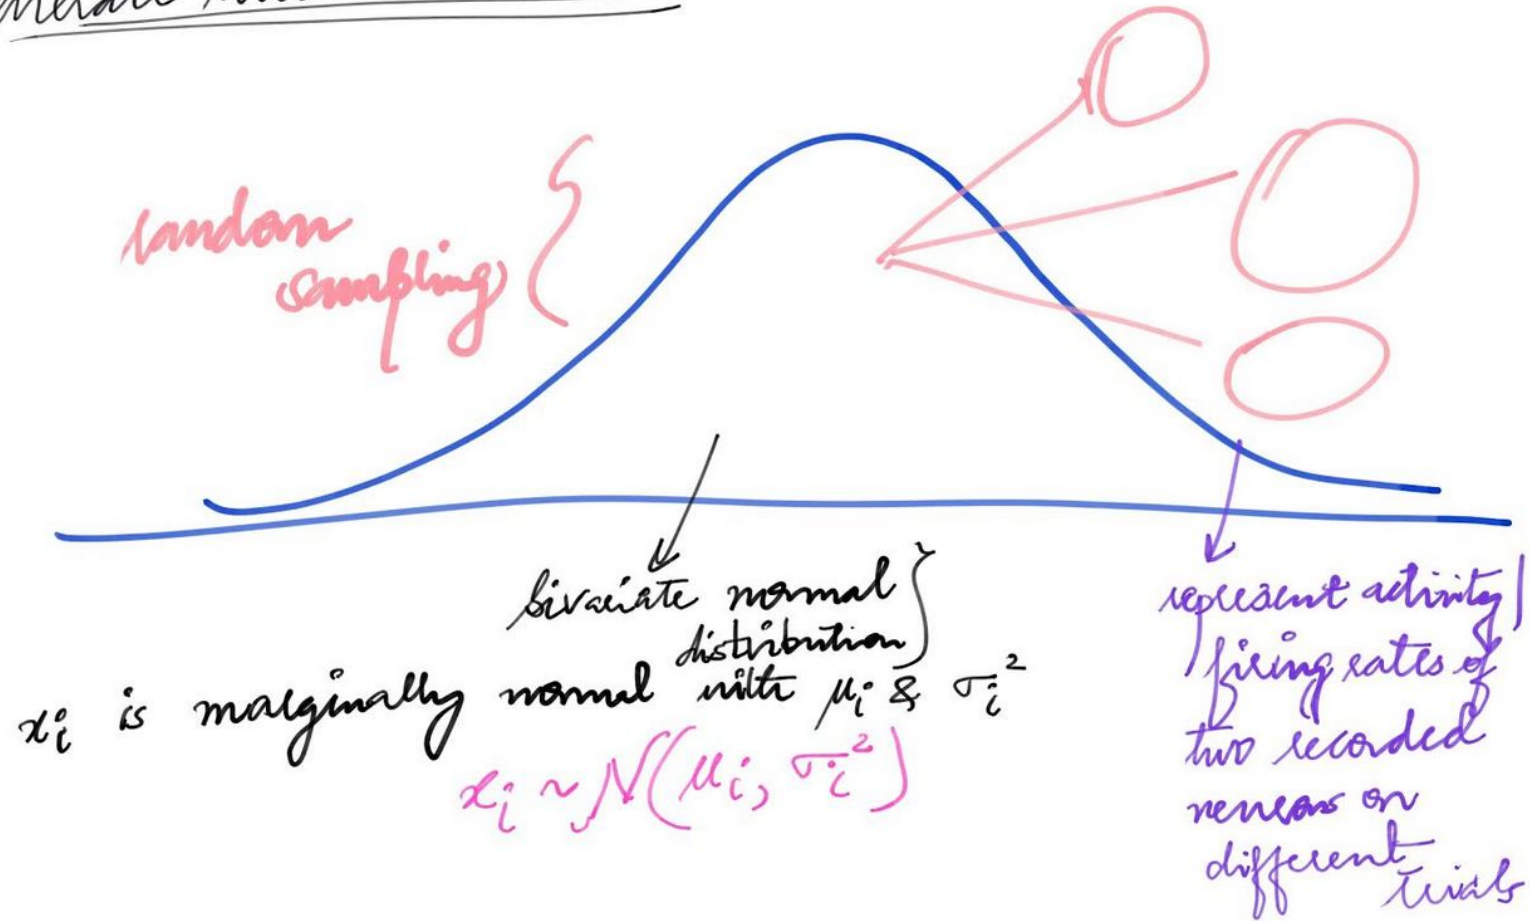 random
sampling
bivariate normal
distribution
x_i is marginally normal with μ_i & σ_i²
x_i ~ N(μ_i, σ_i²)
represent activity/
firing rates of
two recorded
neurons on
different
trials